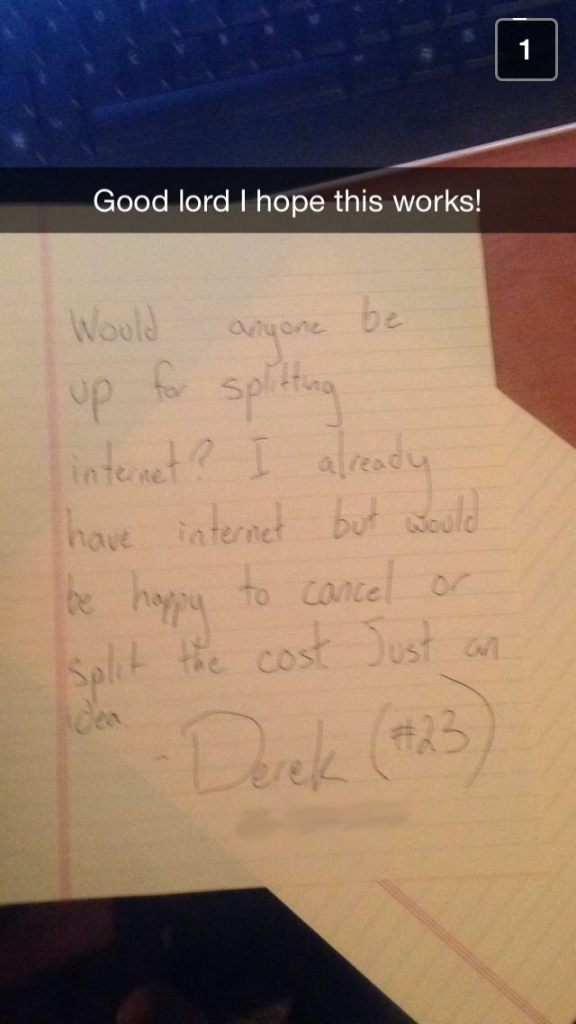 1
Good lord I hope this works!
Would anyone be
up for splitting
internet? I already
have internet but would
be happy to cancel or
split the cost Just an
idea
- Derek (#23)